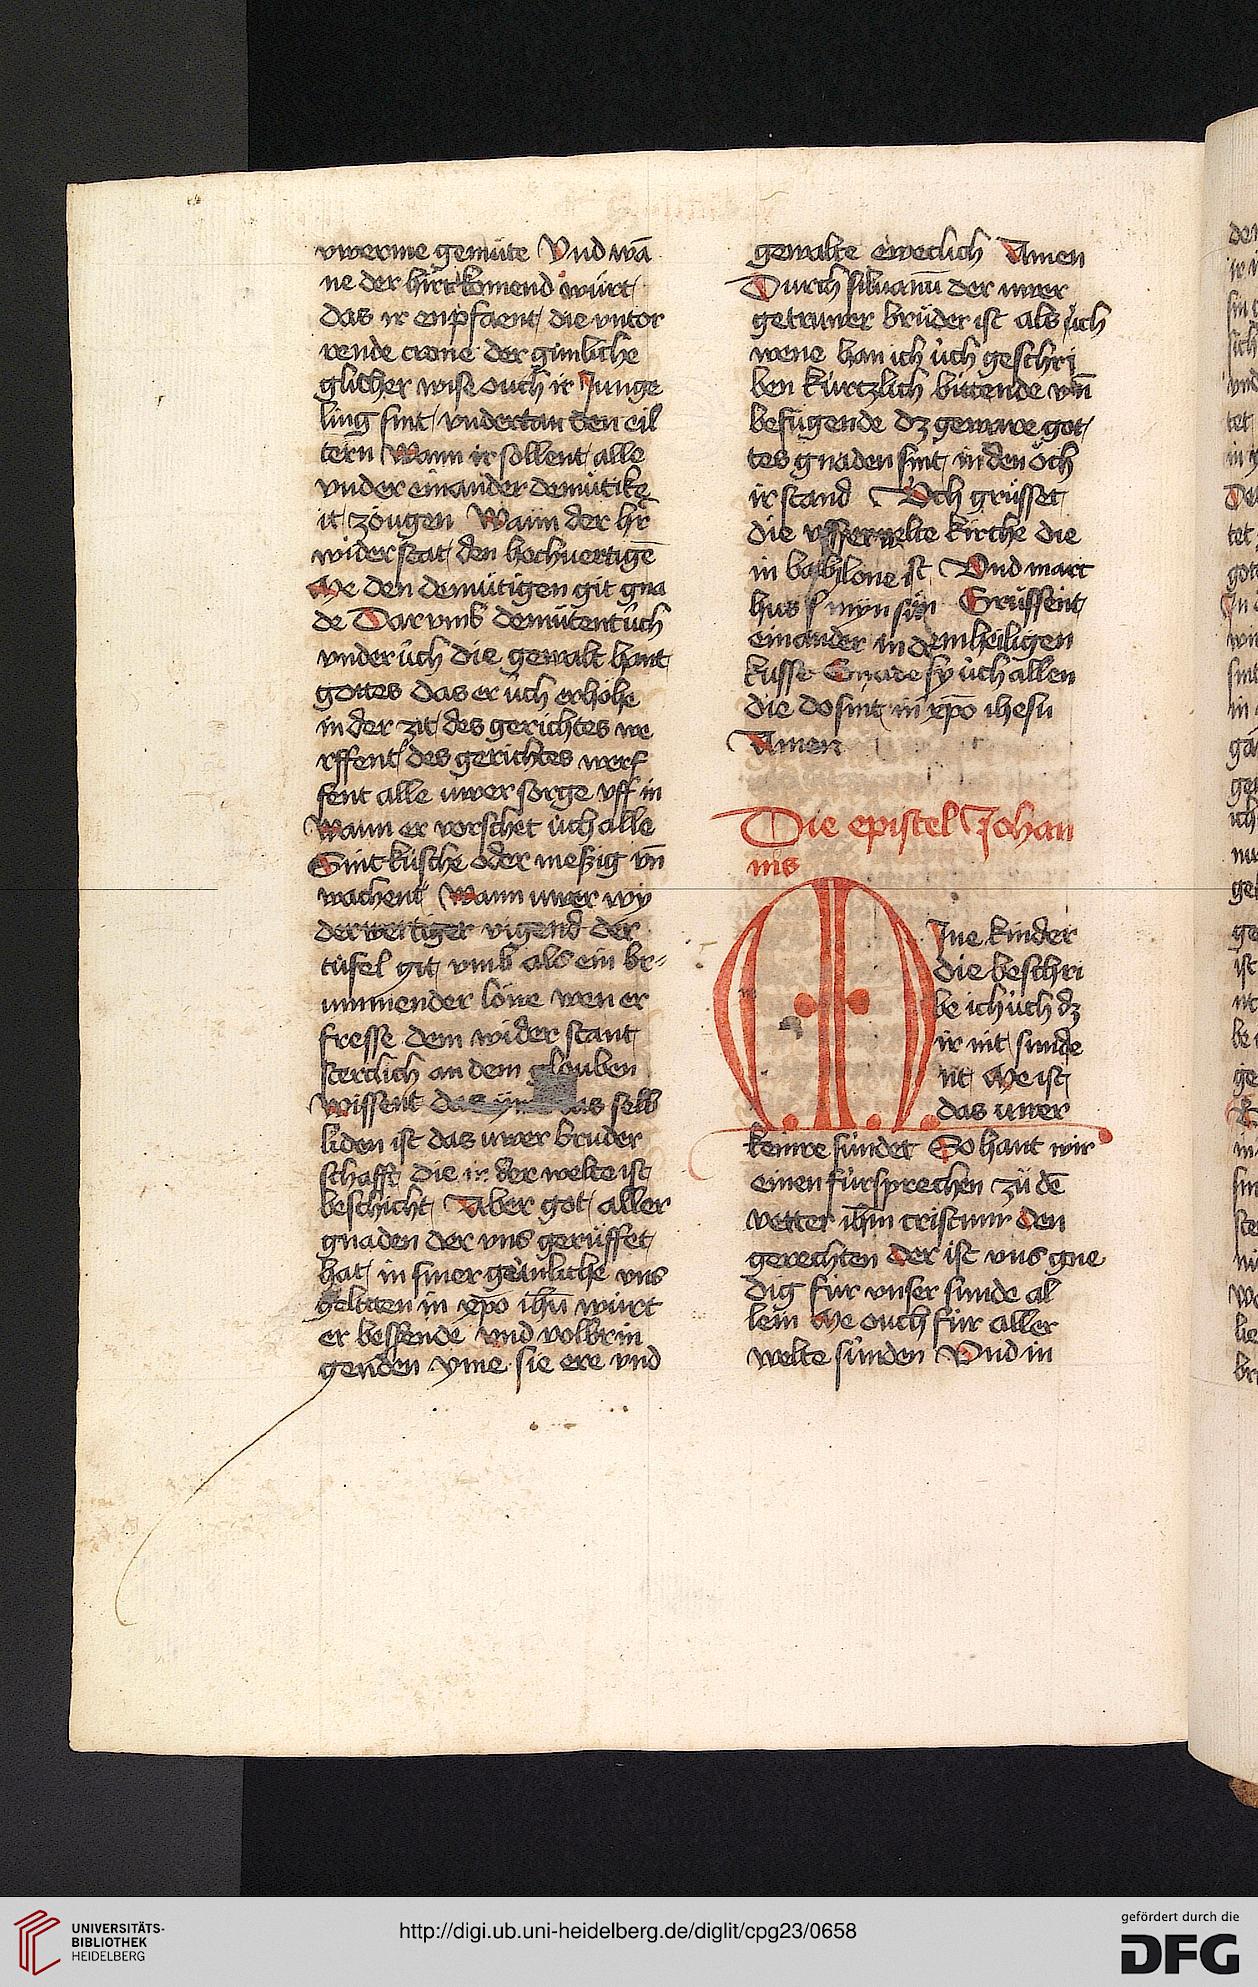 vwerme gemüte Vnd wā
ne der hirt komend würt
das ir enpfaent die vntor
rende crone der günliche
glicher wise ouch ir Junge
ling sint vndertan den eil
tern Wann ir söllent alle
vnder einander demütike
it zöugen Wann der hr̄
widerstat den hochuertigē
Me den demütigen git gna
de Dar vmb demütent üch
vnder üch die gewalt hant
gottes das er üch erhöhe
in der zit des gerichtes we
rffent des gerichtes werf
fent alle uwer sorge vff in
Wann er vorschet üch alle
Sint küsche oder meßig vn̄
wachent Wann uwer wy
derwertiger vigend der
tüfel git vmb als ein br
ummender löwe wen er
fresse dem wider stant
sterclich an dem glouben
Wissent das selb
liden ist das uwer bruder
schafft die in der welte ist
beschicht Aber got aller
gnaden der vns gerüffet
hat in siner günliche vns
gelitten in xpo ih̄u würt
er bessende vnd volbrin
genden yme sie ere vnd
gewalte eweclich Amen
Durch siluanū der uwer
getruwer brüder ist als üch
wene han ich üch geschri
ben kürtzlich bittende vn̄
befügende dz gewar got
tes gnaden sint in den öch
ir stand Och grüsset
die vsserwelte kirche die
in babylone ist Vnd marc
hus myn sün Grüssent
einander in dem heiligen
kusse Gnade sy üch allen
die do sint in xpo ihesu
Amen
Die epistel Johan
nis
Mine kinder
die beschri
be ich üch dz
ir nit sünde
nt Me ist
das uwer
keinre sündet So hant wir
einen fürsprechen zü dē
vetter ih̄m cristum den
gerechten der ist vns gne
dig für vnser sunde al
lein Me ouch für aller
welte sünden Vnd in
UNIVERSITÄTS-
BIBLIOTHEK
HEIDELBERG
http://digi.ub.uni-heidelberg.de/diglit/cpg23/0658
gefördert durch die
DFG